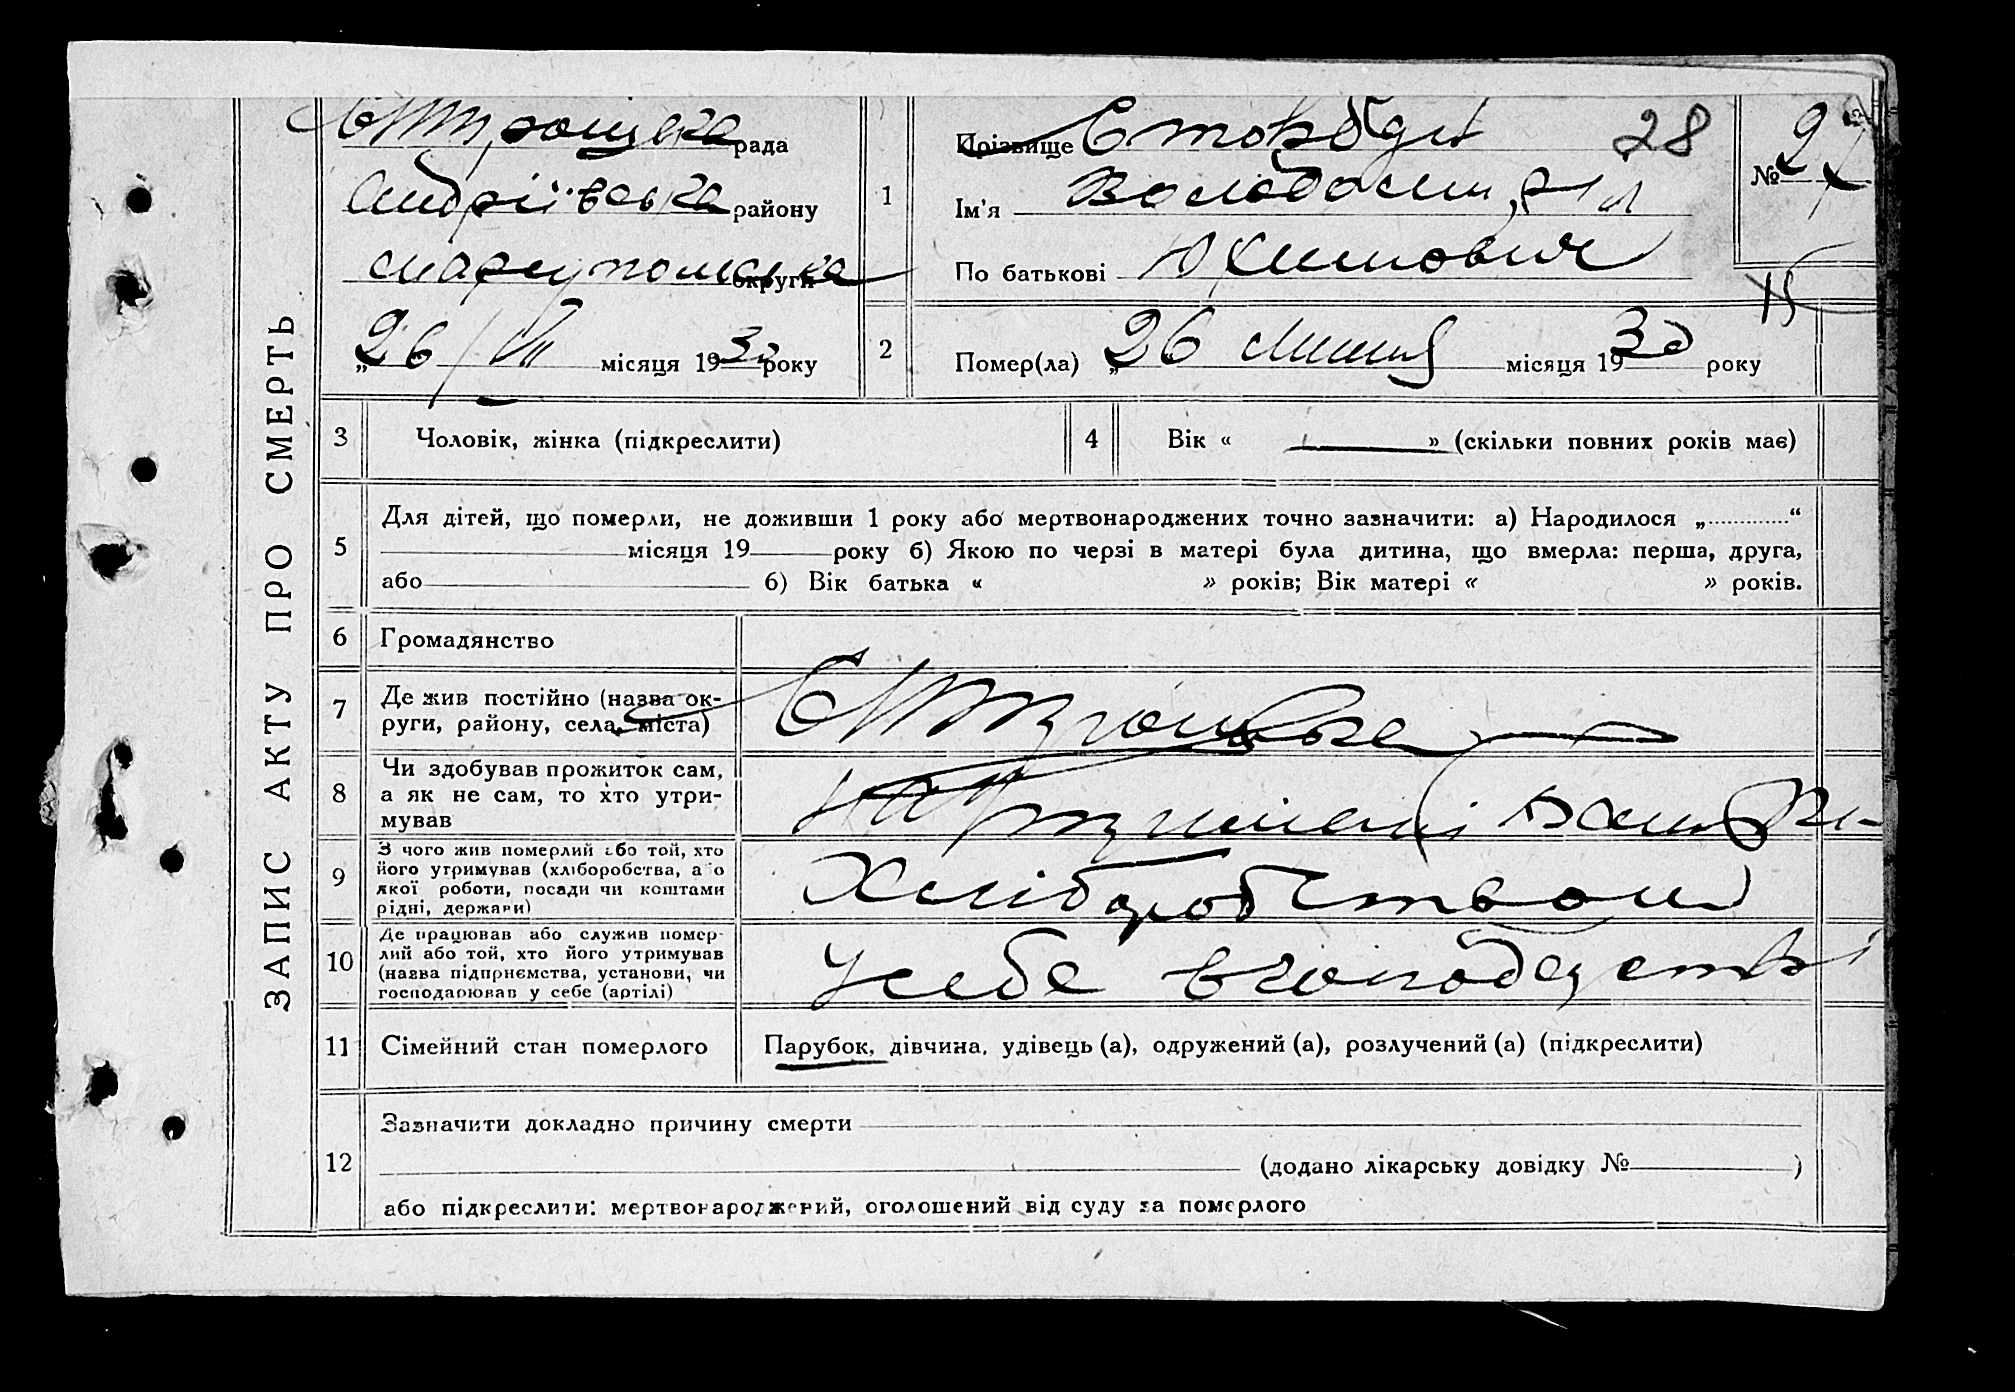 ЗАПИС АКТУ ПРО СМЕРТЬ
рада
Андріївська району
округи
„26/VII місяця 1930 року
1
Прізвище 28
Ім'я
По батькові Юхимович
№ 27
15
2
Помер(ла) „26 липня місяця 1930 року
3
Чоловік, жінка (підкреслити)
4
Вік « » (скільки повних років має)
5
Для дітей, що померли, не доживши 1 року або мертвонароджених точно зазначити: а) Народилося „ “
місяця 19 року б) Якою по черзі в матері була дитина, що вмерла: перша, друга,
або б) Вік батька « » років; Вік матері « » років.
6
Громадянство
7
Де жив постійно (назва ок-
руги, району, села, міста)
8
Чи здобував прожиток сам,
а як не сам, то хто утри-
мував
на утриманні
9
З чого жив померлий або той, хто
його утримував (хліборобства, або
якої роботи, посади чи коштами
рідні, держави)
Хліборобством
10
Де працював або служив помер-
лий або той, хто його утримував
(назва підприємства, установи, чи
господарював у себе (артілі)
У себе в господарстві
11
Сімейний стан померлого
Парубок, дівчина, удівець (а), одружений (а), розлучений (а) (підкреслити)
12
Зазначити докладно причину смерти
(додано лікарську довідку № )
або підкреслити: мертвонароджений, оголошений від суду за померлого